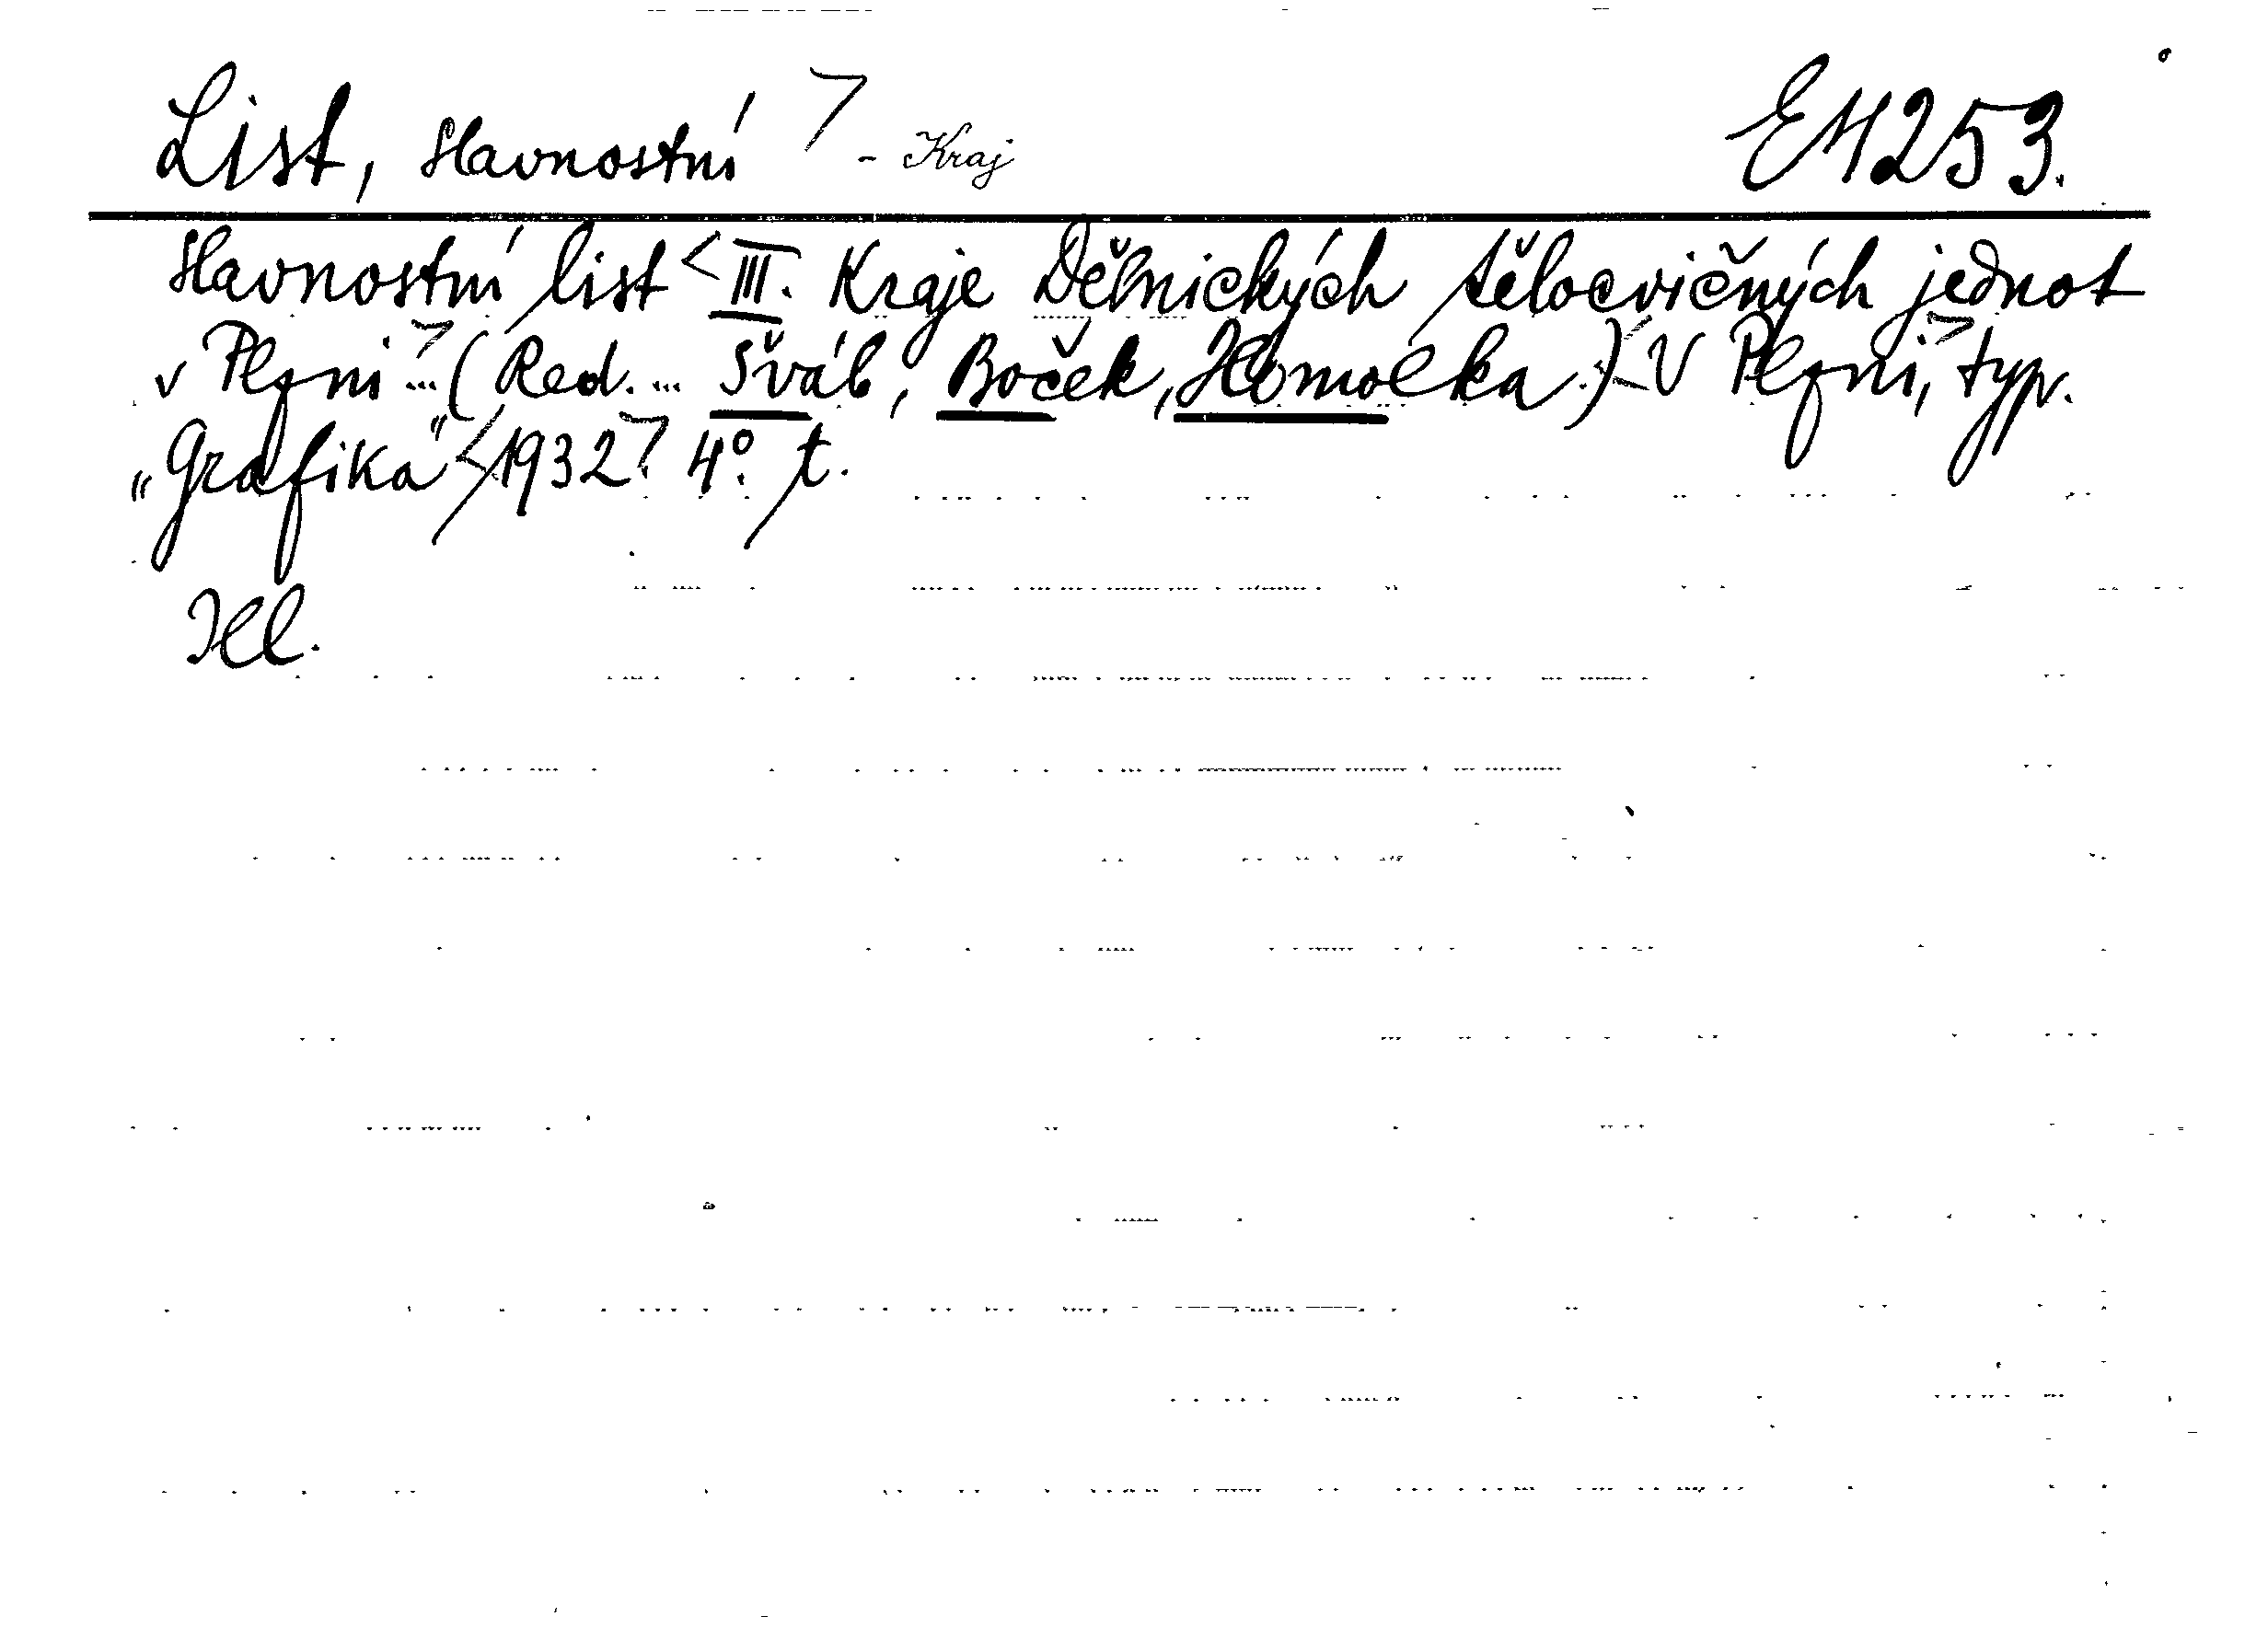 List, slavnostní > - Kraj E4253.
slavnostní list < III. Kraje Dělnických tělocvičných jednot
v Plzni > ... ( Red. ... Šváb, Boček, Homolka.) < V Plzni, > typ.
„Grafika" < 1932 >. 4°. t.
Hl.